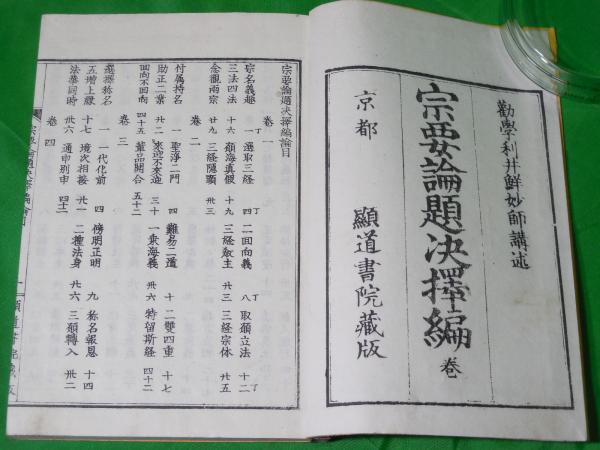 勸學利井鮮妙師講述
宗要論題決擇編 卷
京都 顯道書院藏版
宗要論題決擇編論目
卷一
宗名義趣 一丁 選取三經 四丁 二回向義 八丁 取願立法 十二丁
三法四法 十六 願海真假 十九 三經教主 廿三 三經宗体 廿五
念觀兩宗 廿九 三經隱顯 卅三
卷二
付属持名 一 聖淨二門 四 難易二道 十 二雙四重 十七
助正二業 廿二 來迎不來迎 三十 一乘海義 卅六 特留斯經 四十二
回向不回向 四十五 輩品開合 五十二
卷三
選擇称名 一 一代化前 四 傍明正明 九 称名報恩 十四
五增上緣 十七 境次相接 廿一 二種法身 廿六 三願轉入 卅二
法華同時 卅六 通申別申 四十二
卷四